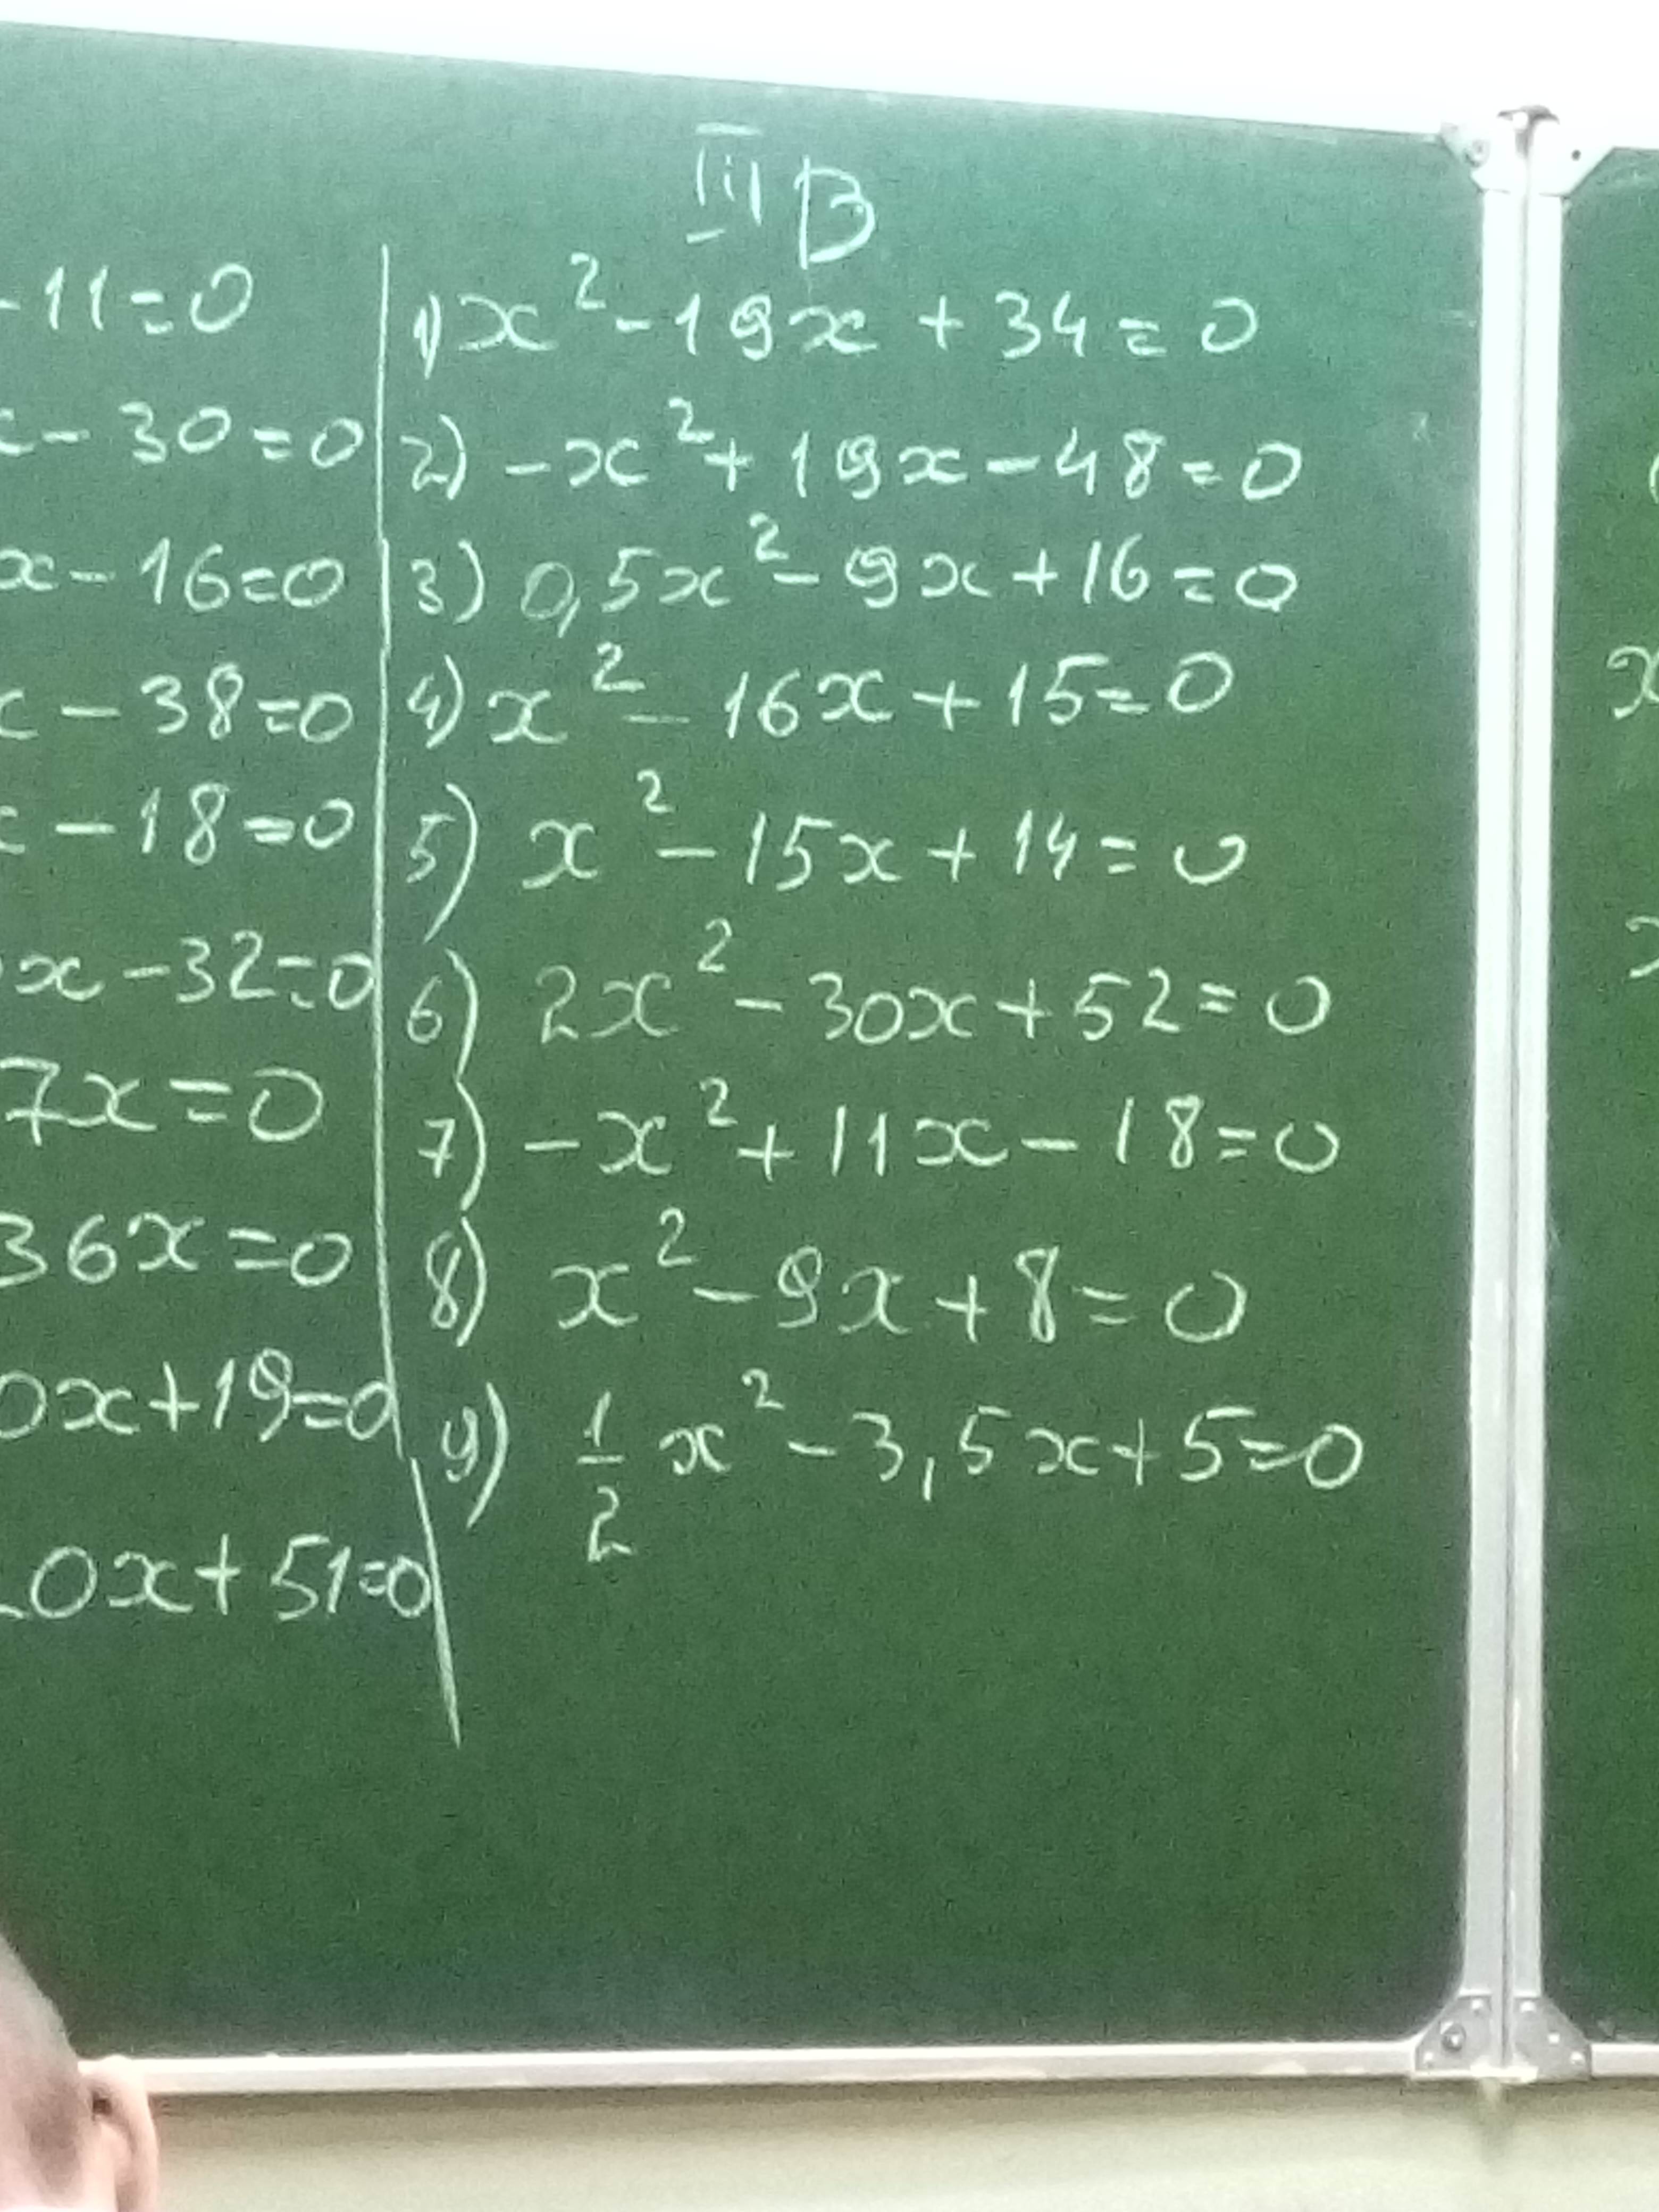 III В
-11=0
x-30=0
x-16=0
x-38=0
x-18=0
x-32=0
7x=0
36x=0
0x+19=0
0x+51=0
1) x²-19x+34=0
2) -x²+19x-48=0
3) 0,5x²-9x+16=0
4) x²-16x+15=0
5) x²-15x+14=0
6) 2x²-30x+52=0
7) -x²+11x-18=0
8) x²-9x+8=0
9) 1/2 x²-3,5x+5=0
x